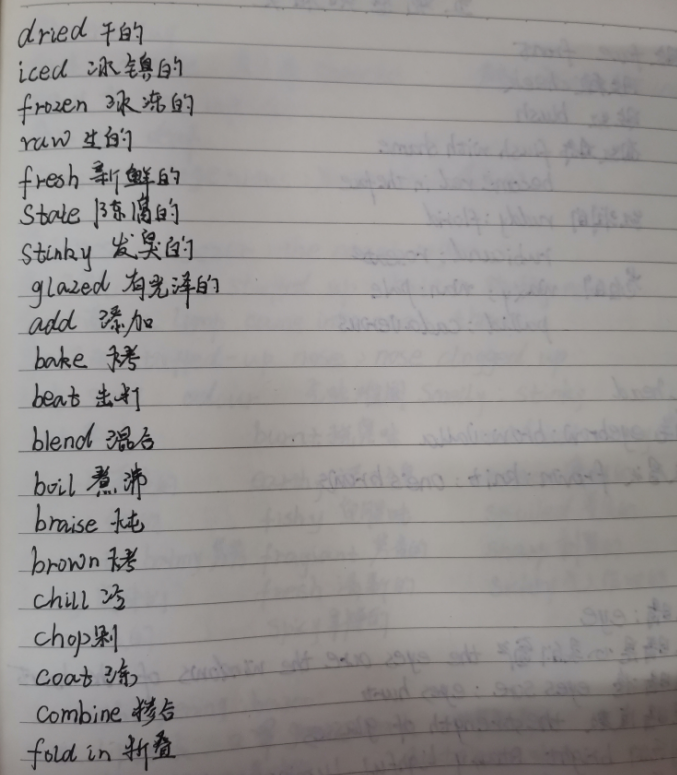 dried 干的
iced 冰镇的
frozen 冰冻的
raw 生的
fresh 新鲜的
State 陈腐的
Stinky 发臭的
glazed 有光泽的
add 添加
bake 烤
beat 击打
blend 混合
boil 煮沸
braise 炖
brown 烤
chill 冷
chop 剁
coat 涂
combine 掺合
fold in 折叠